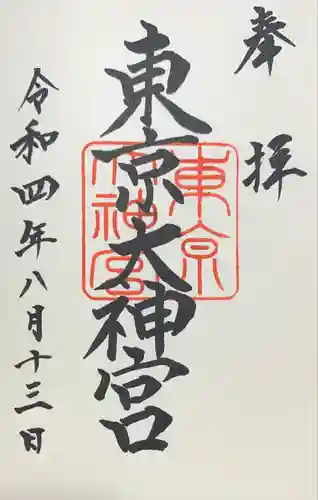 奉拝
東京大神宮
東京大神宮
令和四年八月十三日